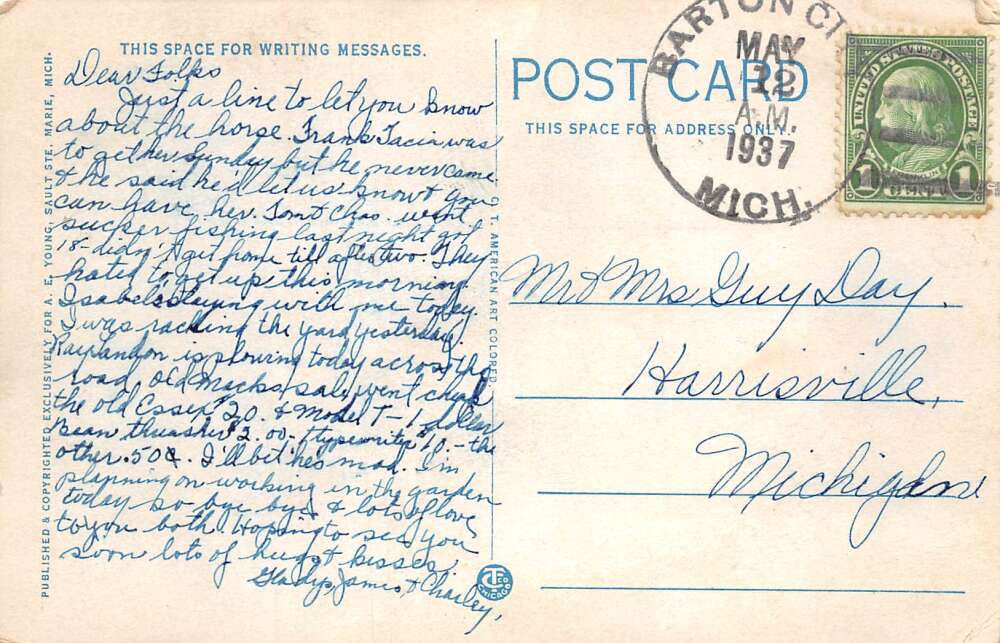 THIS SPACE FOR WRITING MESSAGES.
Dear Folks
Just a line to let you know
about the horse. Frank Tacia was
to get her Sunday but he never came
& he said he'd let us know & you
can have her. Tom & Chas. went
sucker fishing last night got
18 - didn't get home till after two. They
hated to get up this morning.
Isabel's staying with me today.
I was racking the yard yesterday.
Ray Landon is plowing today across the
road. Old Macks sale went cheap
the old Essex $20. & Model T - 1 dollar
Bean thrasher $2.00. 1 typewriter $10. - the
other .50¢. I'll bet he's mad. Im
planning on working in the garden
today so bye bye & lots of love
to you both. Hoping to see you
soon lots of hugs & kisses.
Gladys, James & Charley,
PUBLISHED & COPYRIGHTED EXCLUSIVELY FOR A. E. YOUNG, SAULT STE. MARIE, MICH.
C. T. AMERICAN ART COLORED
POST CARD
THIS SPACE FOR ADDRESS ONLY.
BARTON CI
MAY
12
A.M.
1937
MICH.
UNITED STATES POSTAGE
1 1
Mr & Mrs Guy Day.
Harrisville,
Michigan
CT CO
CHICAGO